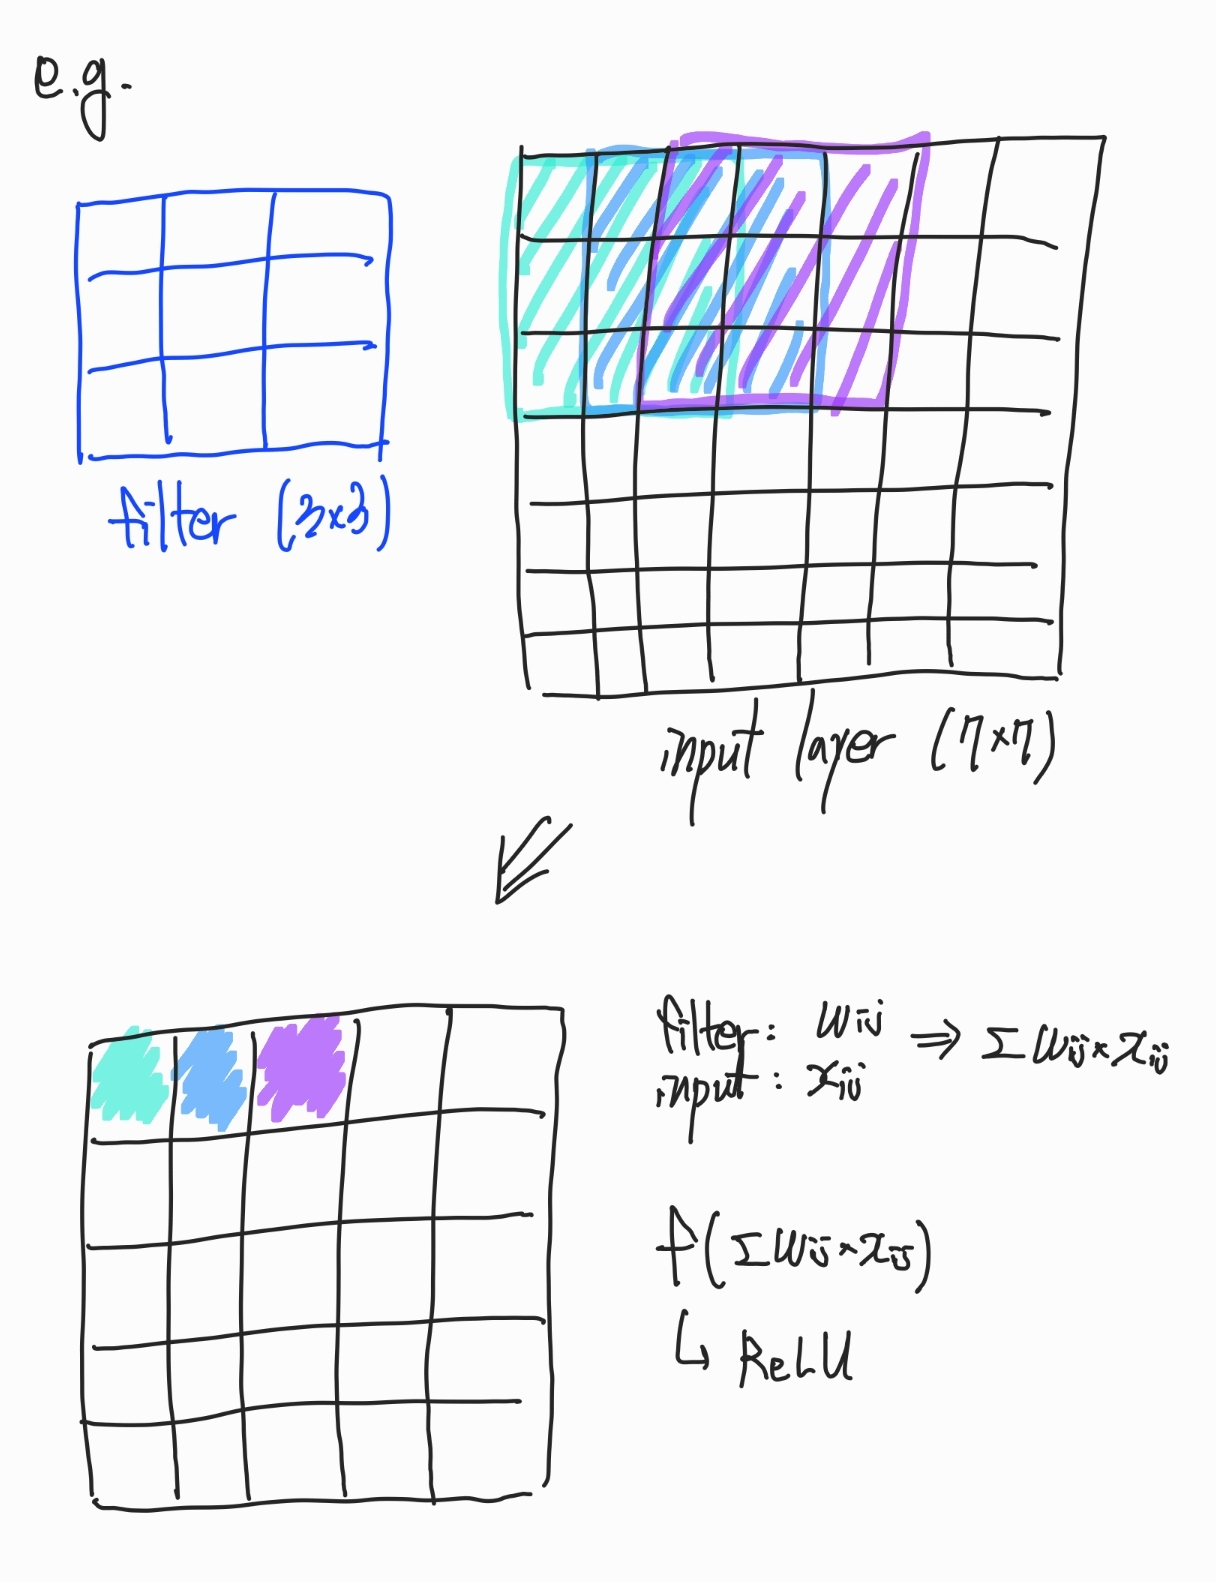 e.g.
filter (3×3)
input layer (7×7)
filter: wij
input: xij
⇒ Σwij×xij
f(Σwij×xij)
↳ ReLU